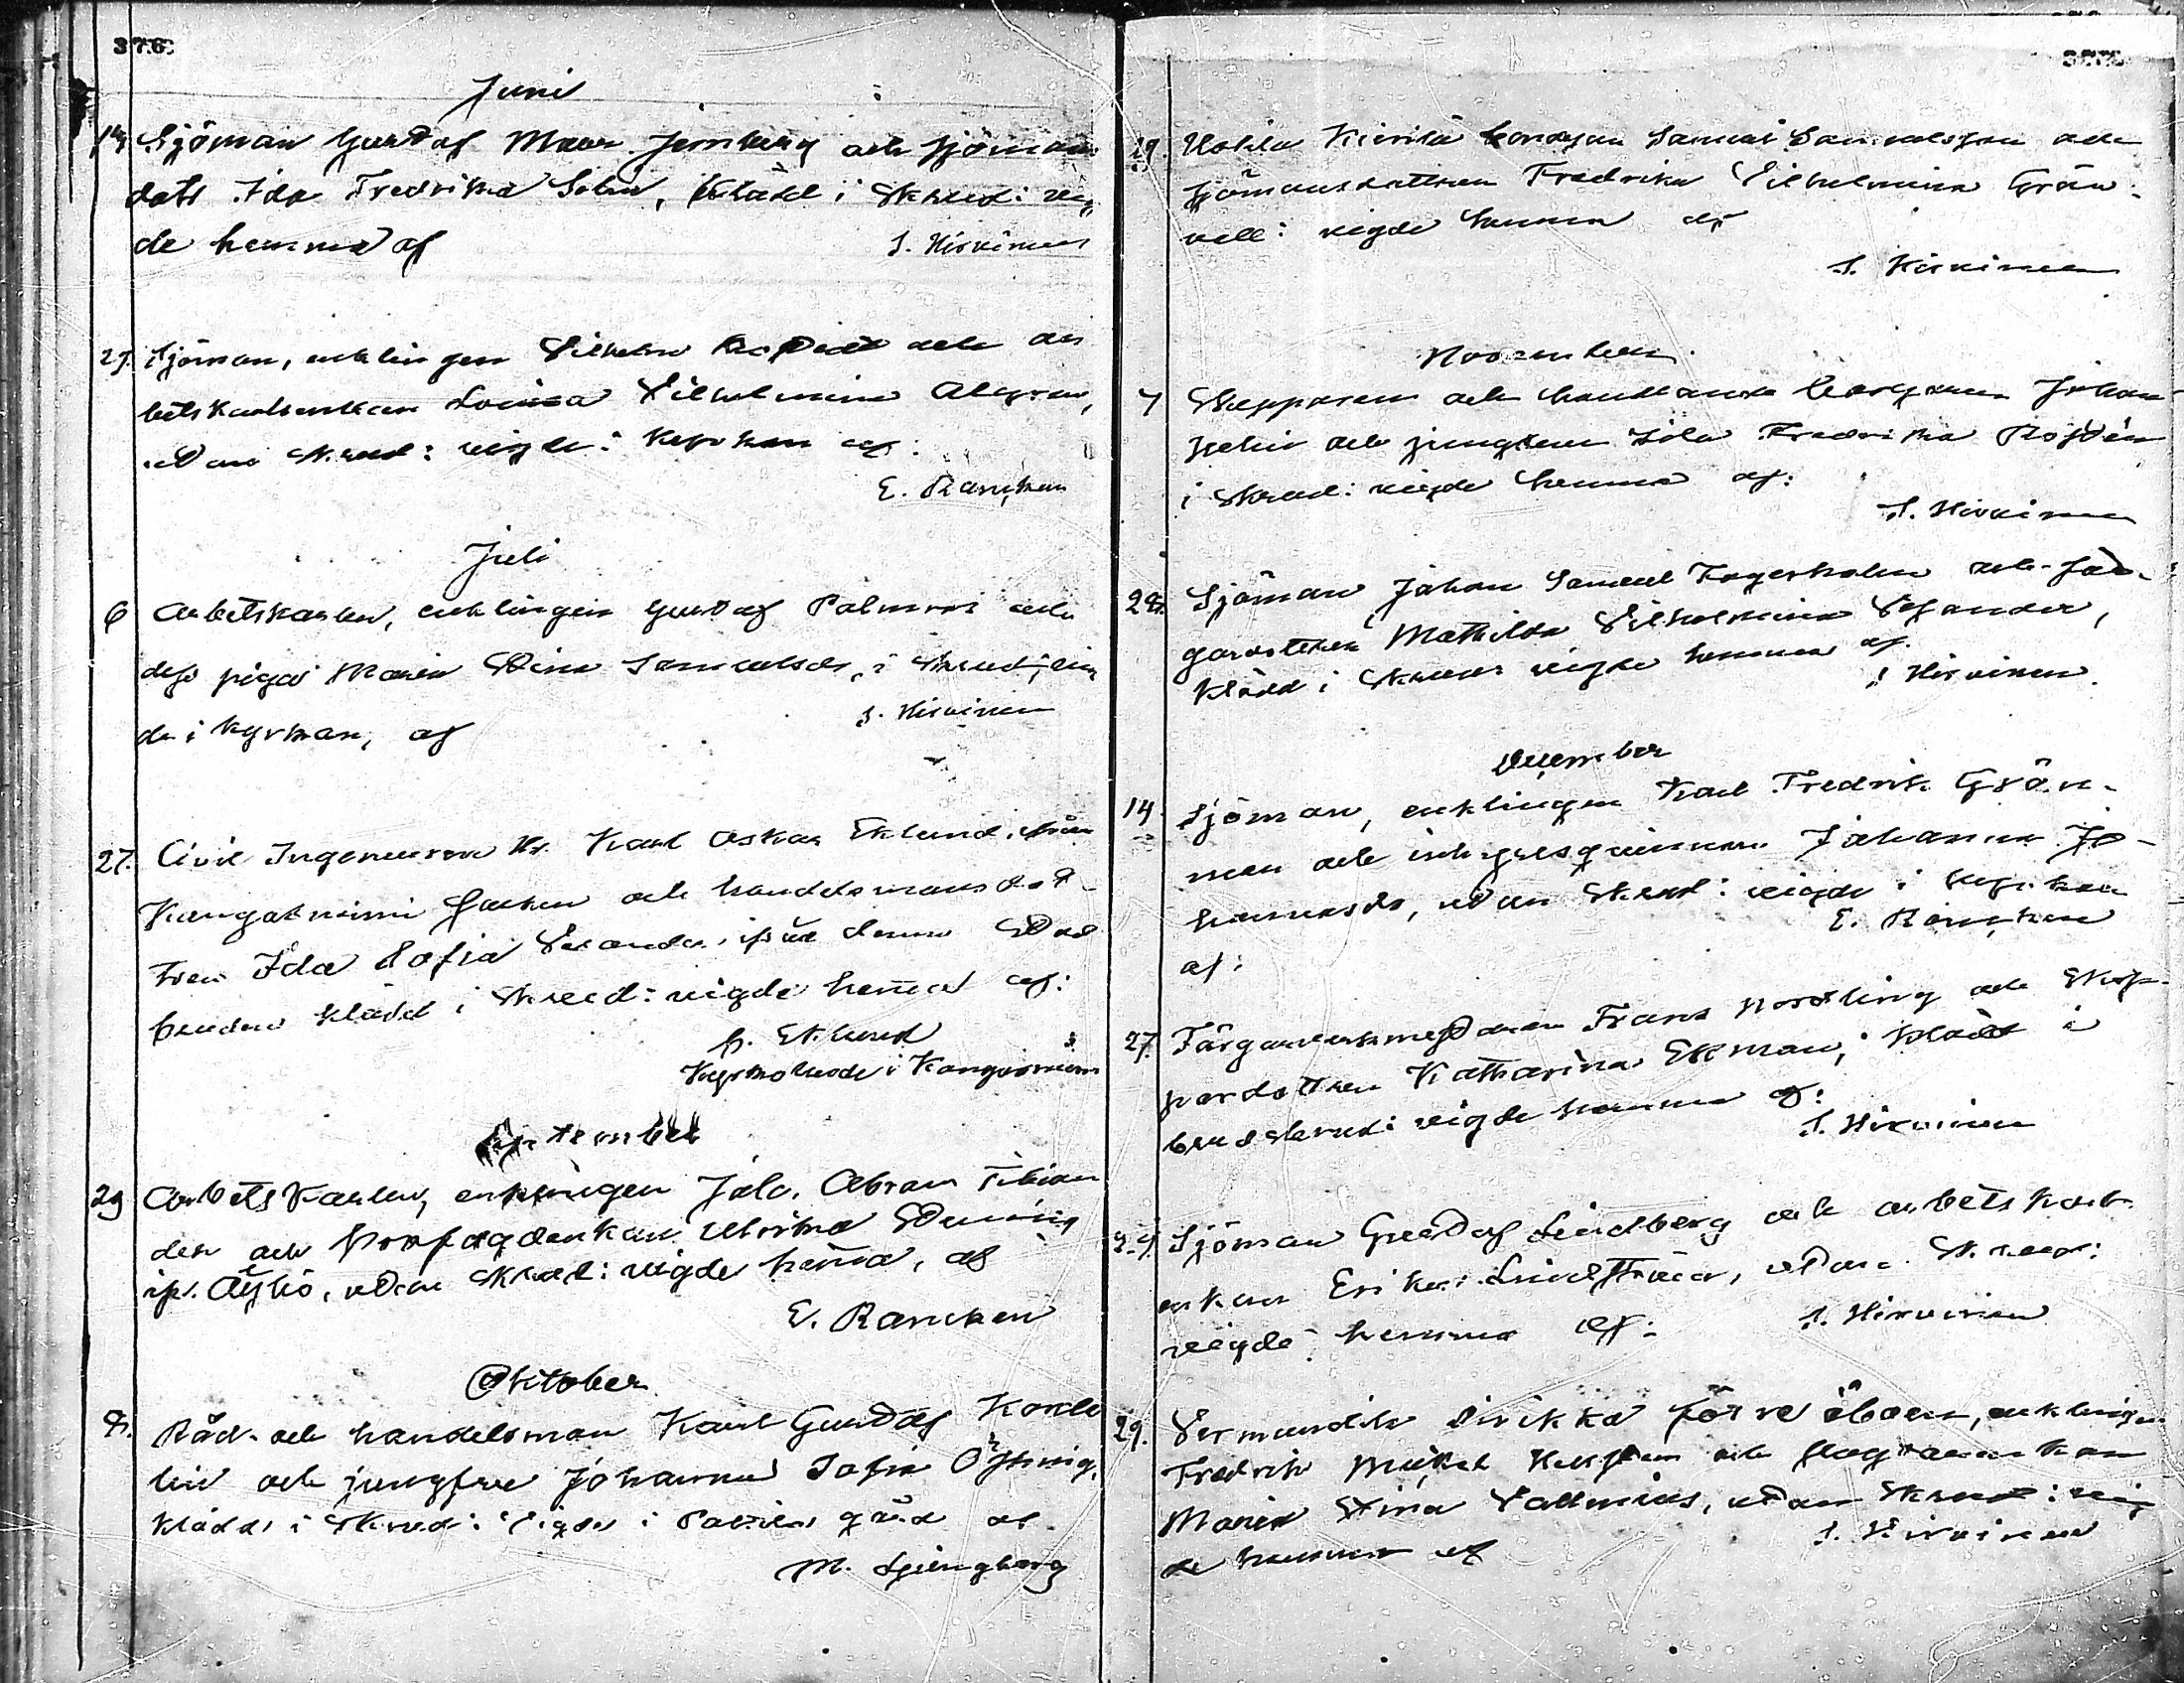 376.
Juni
14 Sjöman Gustaf Maur. Jernberg och sjömans
dott. Ida Fredrika Selin, klädd i skrud: vig
de hemma af
S. Hirvinen
29. Sjöman, enklingen Vilhelm och ar
betskarlsenkan Lovisa Vilhelmina Algren,
utan skrud: vigde i kyrkan af:
E. Rancken
Juli
6 Arbetskarlen, enklingen Gustaf Palmroos och
dess piga Maria Stina Samuelsdr, i skrud, vig
de i kyrkan, af
S. Hirvinen
27. Civil Ingeniören Hr. Karl Oskar Eklund, från
Kangasniemi socken och handelsmansdot-
tren Ida Sofia ifrån denna stad
bruden klädd i skrud: vigde hemma af:
Eklund
Kyrkoherde i Kangasniemi
September
29 Arbetskarlen, enklingen Jak. Abram
den och enkan Ulrika
utan skrud: vigde hemma, af
E. Rancken
Oktober
Råd- och handelsman Karl Gustaf Korde
lin och jungfru Johanna Sofia
klädd i skrud: vigde i gård af
M. Ljungberg
19. Samuel Samuelsson och
sjömansdottren Fredrika Vilhelmina Grön-
vall: vigde hemma af
S. Hirvinen
November
7 Skepparen och handlande borgaren Johan
och jungfrun Ida Fredrika Rostén
i skrud: vigde hemma af:
S. Hirvinen
28. Sjöman Johan Samuel Fagerholm och får-
gardottren Mathilda Vilhelmina
klädd i skrud: vigde hemma af.
S. Hirvinen.
December
14. Sjöman, enklingen Karl Fredrik Grön-
man och inhyrsqvinnan Johanna Jo-
hannesdr, utan skrud: vigde i kyrkan
af:
E. Rancken
27. Färgaremästaren Frans Nordling och Skep-
pardottren Katharina Ekman, klädd i
brudskrud: vigde hemma af:
S. Hirvinen
Sjöman Gustaf Lindberg och arbetskarls
enkan Erika Lindström, utan skrud:
vigde hemma af:
S. Hirvinen
29. Vermuntila Sirikka förre åboen, enklingen
Fredrik Mickel och enkan
Maria Stina Vallenius, utan skrud: vig
de hemma af
S. Hirvinen